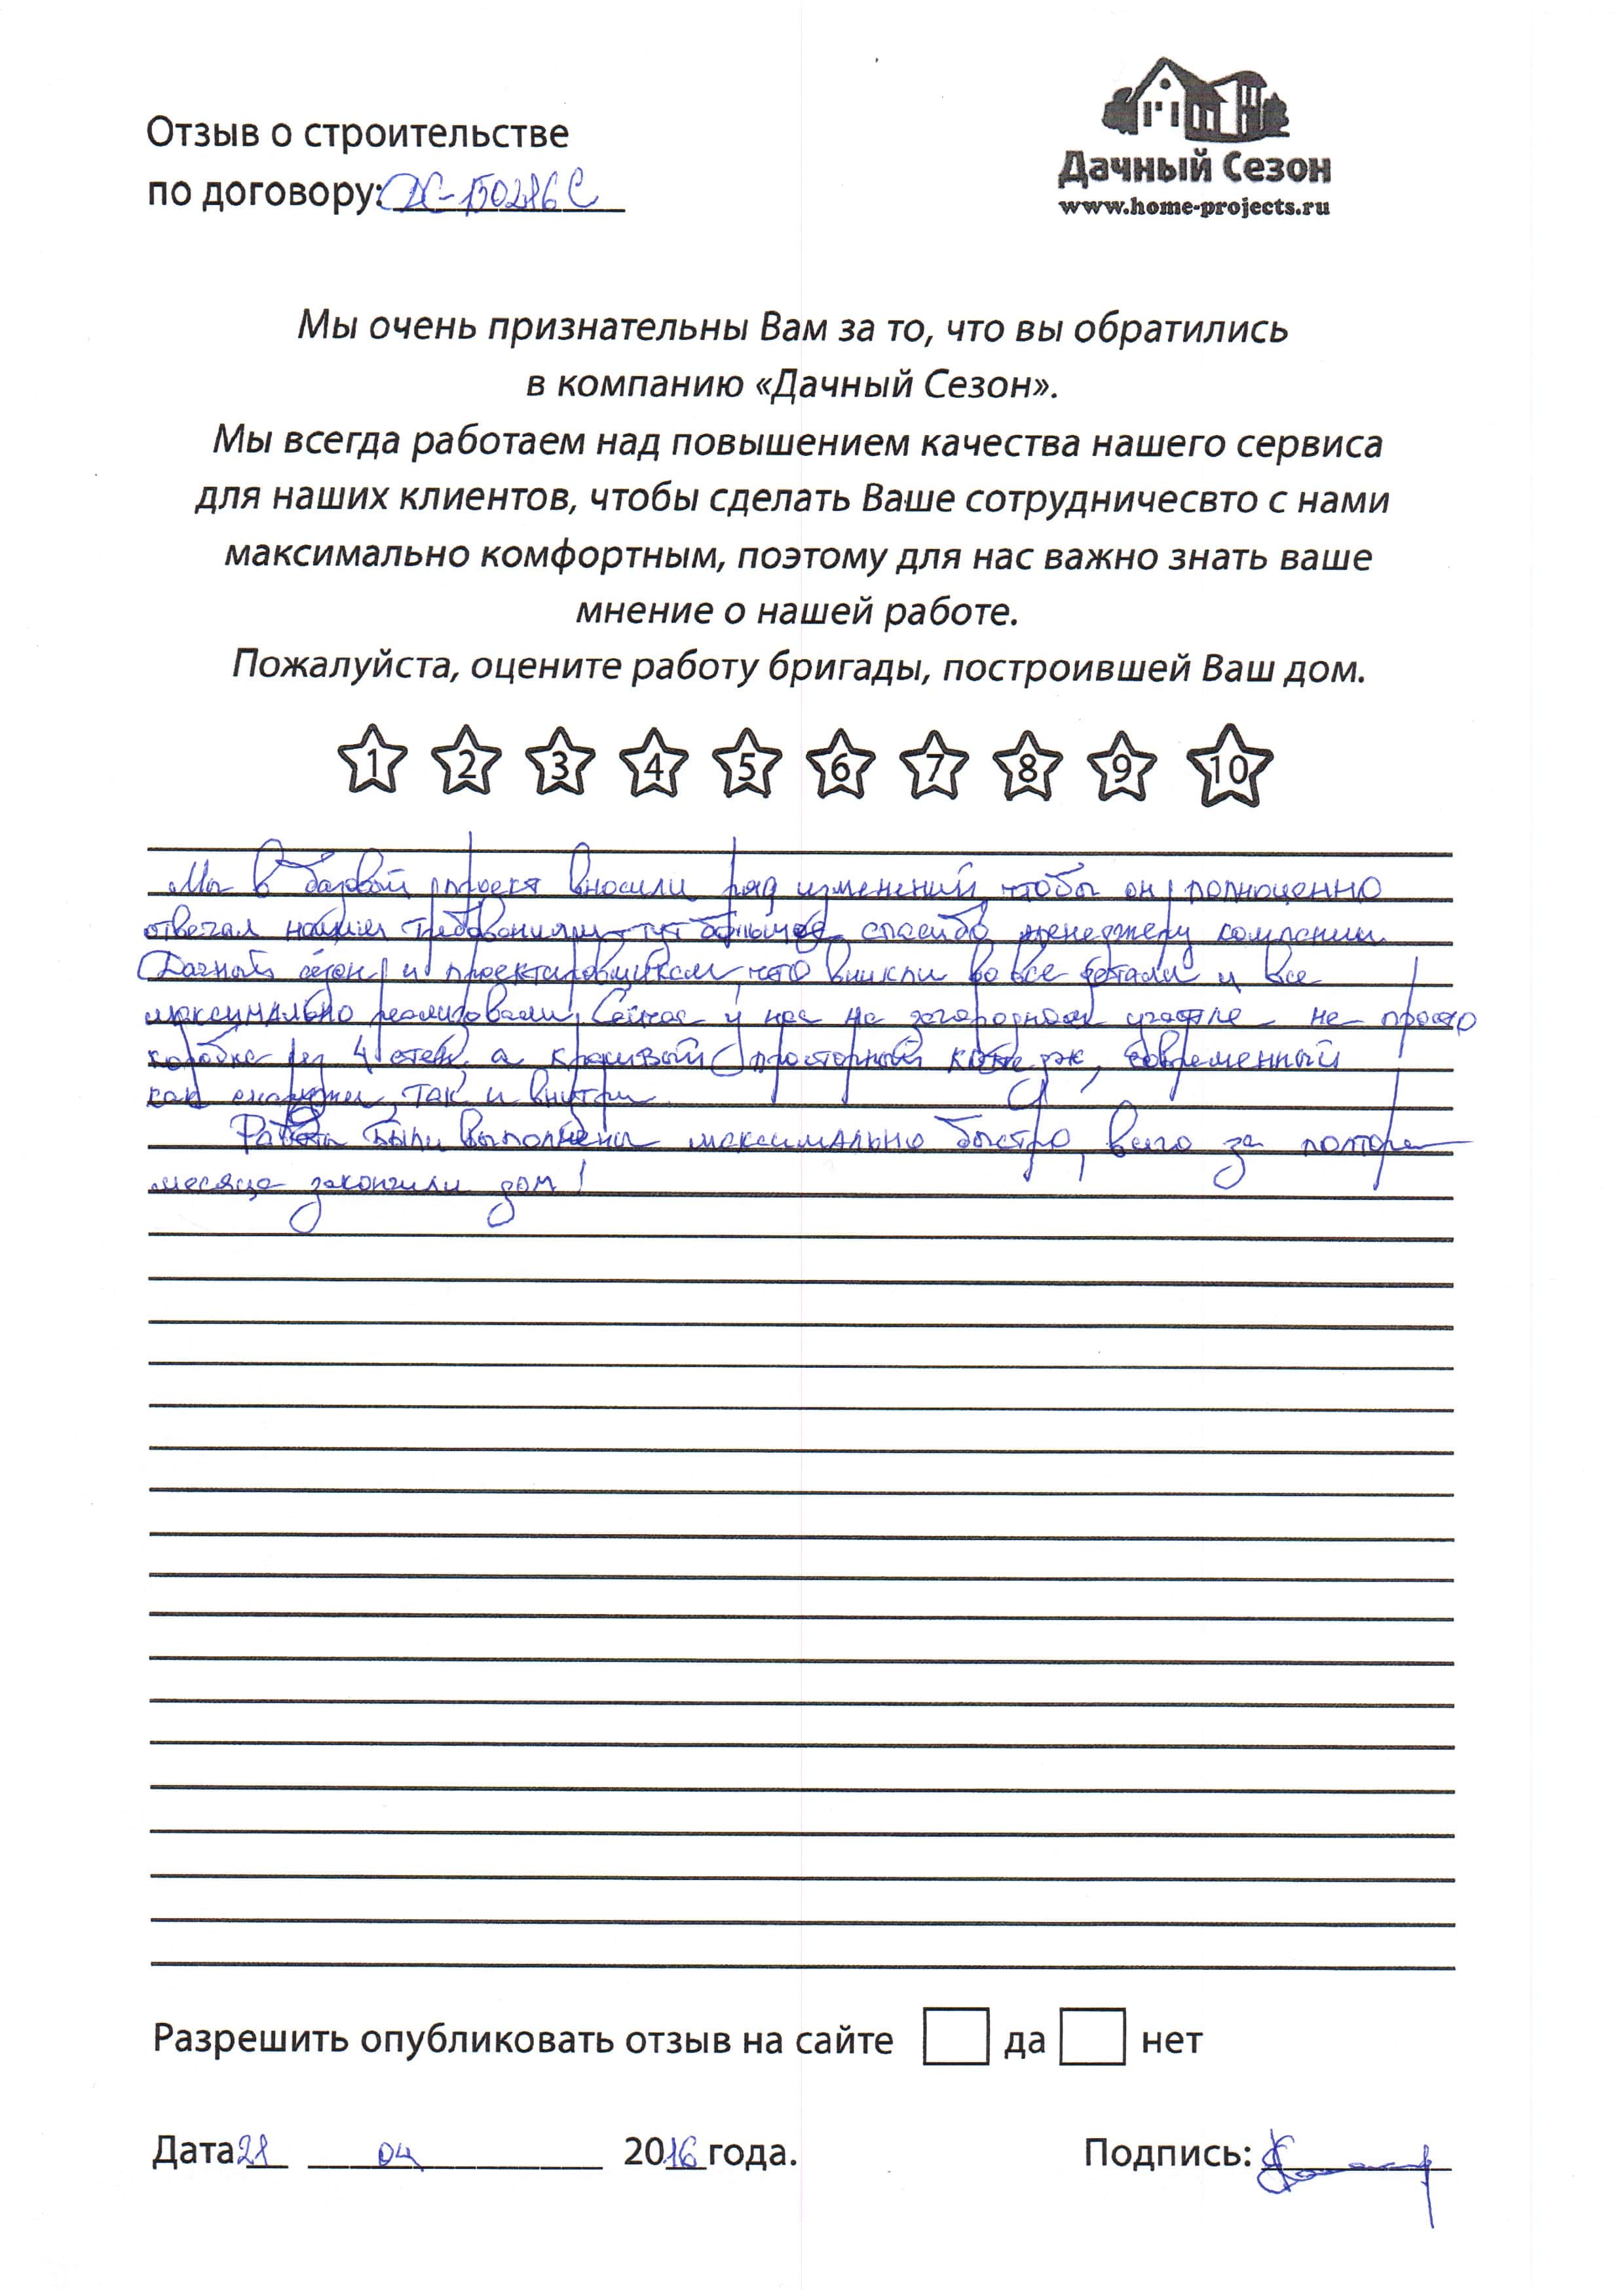 Отзыв о строительстве
по договору: ДС-150286С
Дачный Сезон
www.home-projects.ru
Мы очень признательны Вам за то, что вы обратились
в компанию «Дачный Сезон».
Мы всегда работаем над повышением качества нашего сервиса
для наших клиентов, чтобы сделать Ваше сотрудничесвто с нами
максимально комфортным, поэтому для нас важно знать ваше
мнение о нашей работе.
Пожалуйста, оцените работу бригады, построившей Ваш дом.
1 2 3 4 5 6 7 8 9 10
Мы в базовый проект вносили ряд изменений, чтобы он полноценно
отвечал нашим требованиям, тут большое спасибо менеджеру компании
Дачный сезон и проектировщикам, что вникли во все детали и все
максимально реализовали. Сейчас у нас на загородном участке не просто
коробка из 4 стен, а красивый просторный коттедж, современный
как снаружи, так и внутри.
Работы были выполнены максимально быстро, всего за полтора
месяца закончили дом!
Разрешить опубликовать отзыв на сайте да нет
Дата 04 2016 года. Подпись: